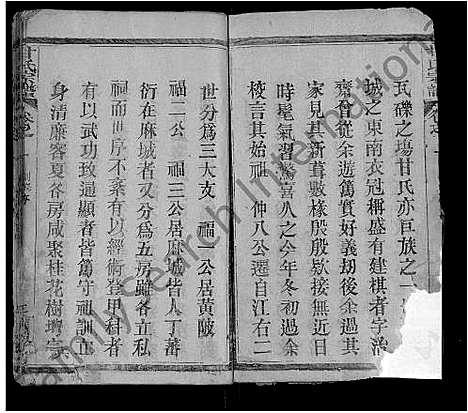 氏礫之塲甘氏亦巨族之一
城之東南衣冠稱盛有建棋者字治
齋曾從余遊篤實好義劫後余
家見其新葺數椽殷殷欵接無近日
時髦氣習驚喜久之今年冬初過余
棧言其始祖 仲八公遷自江右二
世分爲三大支 福一公居黃陂
福二公 福三公居麻城皆人丁蕃
衍在麻城者又分爲五房雖各立私
祠而世序不紊有以經術登甲科者
有以武功致通顯者皆篤守祖訓正
身清廉客夏各房咸聚桂花樹壪宗
甘氏宗譜
氏宗譜
Family Search International